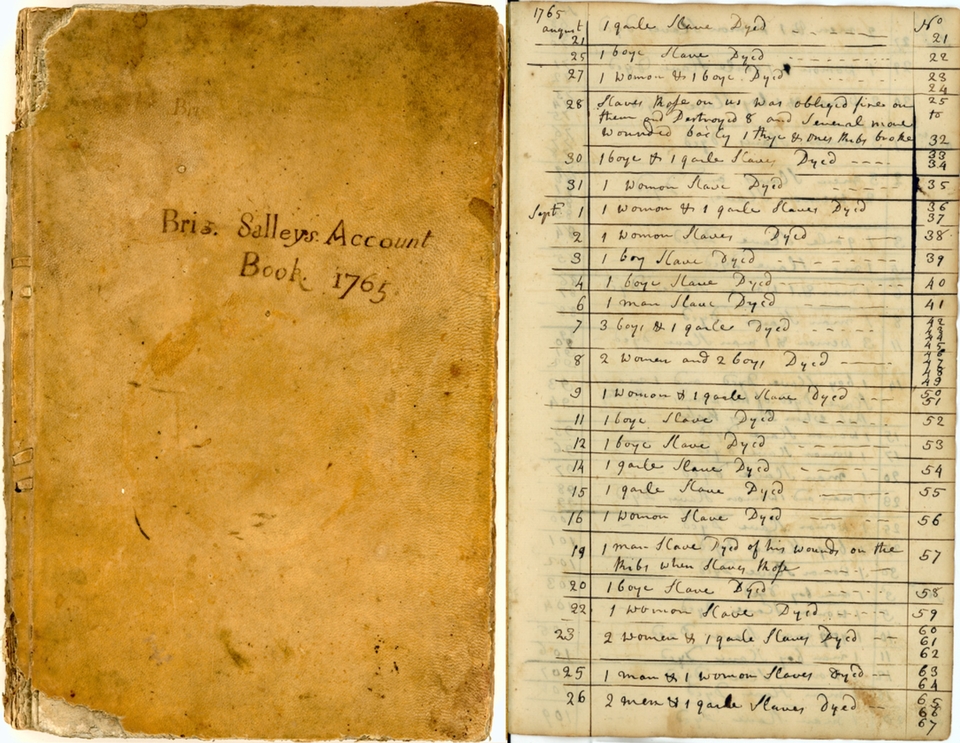 Brig. Salleys Account
Book. 1765
1765 No
august 21 1 garle Slave Dyed 21
25 1 boye Slave Dyed 22
27 1 Womon & 1 boye Dyed 23 24
28 Slaves Rose on us was obliged fire on 25
them and Destroyed 8 and Several more to
Wounded badly 1 Thye & ones Ribs broke 32
30 1 boye & 1 garle Slaves Dyed 33 34
31 1 Womon Slave Dyed 35
Sept 1 1 Womon & 1 garle Slaves Dyed 36 37
2 1 Womon Slaves Dyed 38
3 1 boy Slave Dyed 39
4 1 boye Slave Dyed 40
6 1 man Slave Dyed 41
7 3 boys & 1 garle Dyed 42 43 44 45
8 2 Women and 2 boys Dyed 46 47 48 49
9 1 Womon & 1 garle Slave Dyed 50 51
11 1 boye Slave Dyed 52
12 1 boye Slave Dyed 53
14 1 garle Slave Dyed 54
15 1 garle Slave Dyed 55
16 1 Womon Slave Dyed 56
19 1 man Slave Dyed of his Wounds on the 57
Ribs when Slaves Rose
20 1 boye Slave Dyed 58
22 1 Womon Slave Dyed 59
23 2 Women & 1 garle Slaves Dyed 60 61 62
25 1 man & 1 Womon Slaves Dyed 63 64
26 2 men & 1 garle Slaves Dyed 65 66 67